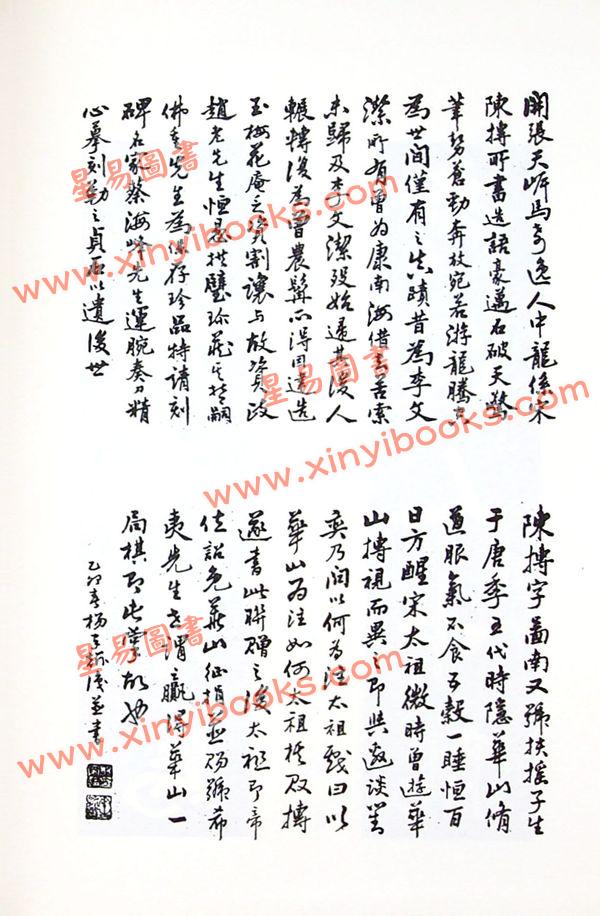 開張天岸馬奇逸人中龍係宋
陳摶所書造語豪邁石破天驚
筆勢蒼勁奔放宛若游龍騰
為世間僅有之真蹟昔為李文
潔所有曾為康南海借去索
未歸及李文潔歿始還其後人
輾轉後為曾農髯所得因遭造
玉梅花庵之資割讓与故資政
趙老先生恒 拱璧珍藏 哲嗣
佛重先生為保存珍品特請刻
碑名家蔡海峰先生運腕奏刀精
心摹刻勒之貞石以遺後世
陳摶字圖南又號扶搖子生
于唐季五代時隱華山脩
道服氣不食五穀一睡恒百
日方醒宋太祖微時曾遊華
山摶視而異之即與邀談對
奕乃問以何為注太祖戲曰以
華山為注如何太祖棋敗摶
遂書此聯贈之後太祖即帝
位詔免華山征捐並賜號希
夷先生世謂之贏得華山一
局棋即此 故也
乙卯春楊 并書
星易圖書
www.xinyibooks.com
星易圖書
www.xinyibooks.com
星易圖書
www.xinyibooks.com